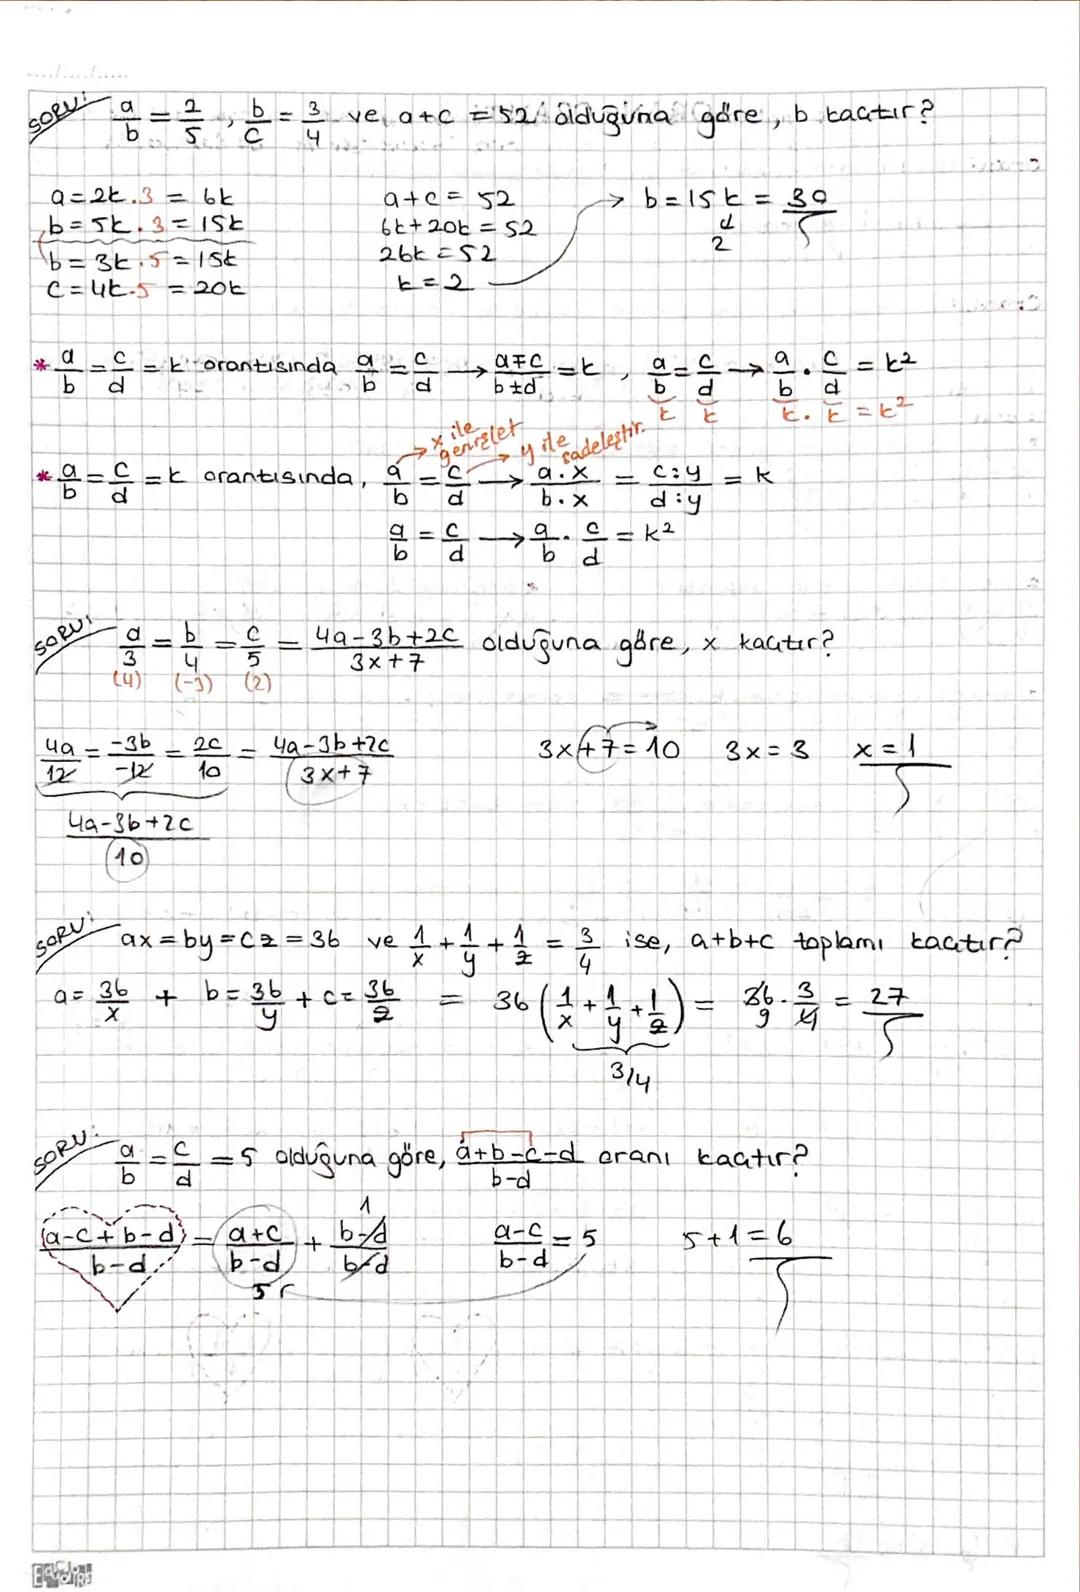 SORU: a/b = 2/5, b/c = 3/4 ve a+c = 52 olduğuna göre, b kaçtır?
a=2k.3 = 6k
b=5k.3=15k
b=3k.5=15k
c=4k.5 = 20k
a+c = 52
6k+20k=52
26k=52
k=2
b=15k = 30
2
* a/b = c/d = k orantısında a/b = c/d → a∓c/b±d = k, a/b = c/d → a/b . c/d = k²
k k k . k = k²
x ile genişlet
y ile sadeleştir.
* a/b = c/d = k orantısında, a/b = c/d → a.x/b.x = c:y/d:y = k
a/b = c/d → a/b . c/d = k²
SORU: a/3 = b/4 = c/5 = 4a-3b+2c/3x+7 olduğuna göre, x kaçtır?
(4) (-3) (2)
4a/12 = -3b/-12 = 2c/10 = 4a-3b+2c/3x+7
4a-3b+2c/10
3x+7=10 3x=3 x=1
SORU: ax=by=cz=36 ve 1/x + 1/y + 1/z = 3/4 ise, a+b+c toplamı kaçtır?
a= 36/x + b= 36/y + c= 36/z = 36 (1/x + 1/y + 1/z) = 36 . 3/4 = 27
9
3/4
SORU: a/b = c/d = 5 olduğuna göre, a+b-c-d/b-d oranı kaçtır?
(a-c+b-d)/b-d = a+c/b-d + b-d/b-d
1
5
a-c/b-d = 5
5+1=6